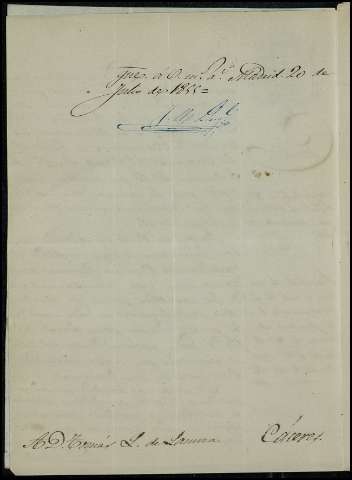 gue. á V. m.s a.s Madrid 20 de
Julio de 1855=
Sr. D. Tomás L. de Lamera
Cáceres.